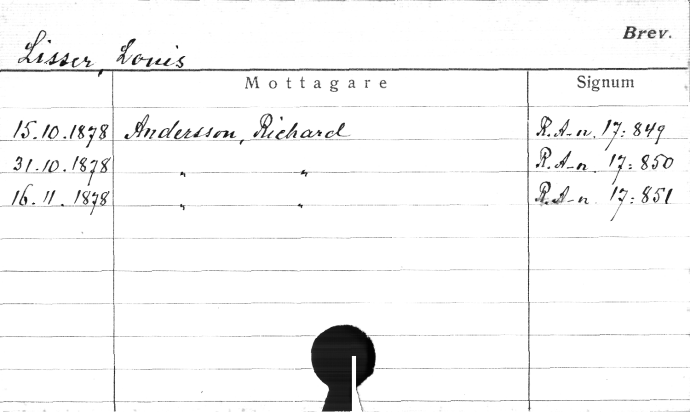 Brev.
Lisser, Louis
Mottagare Signum
15.10.1878 Andersson, Richard R.A-n. 17:849
31.10.1878 " " R.A-n. 17:850
16.11.1878 " " R.A-n. 17:851